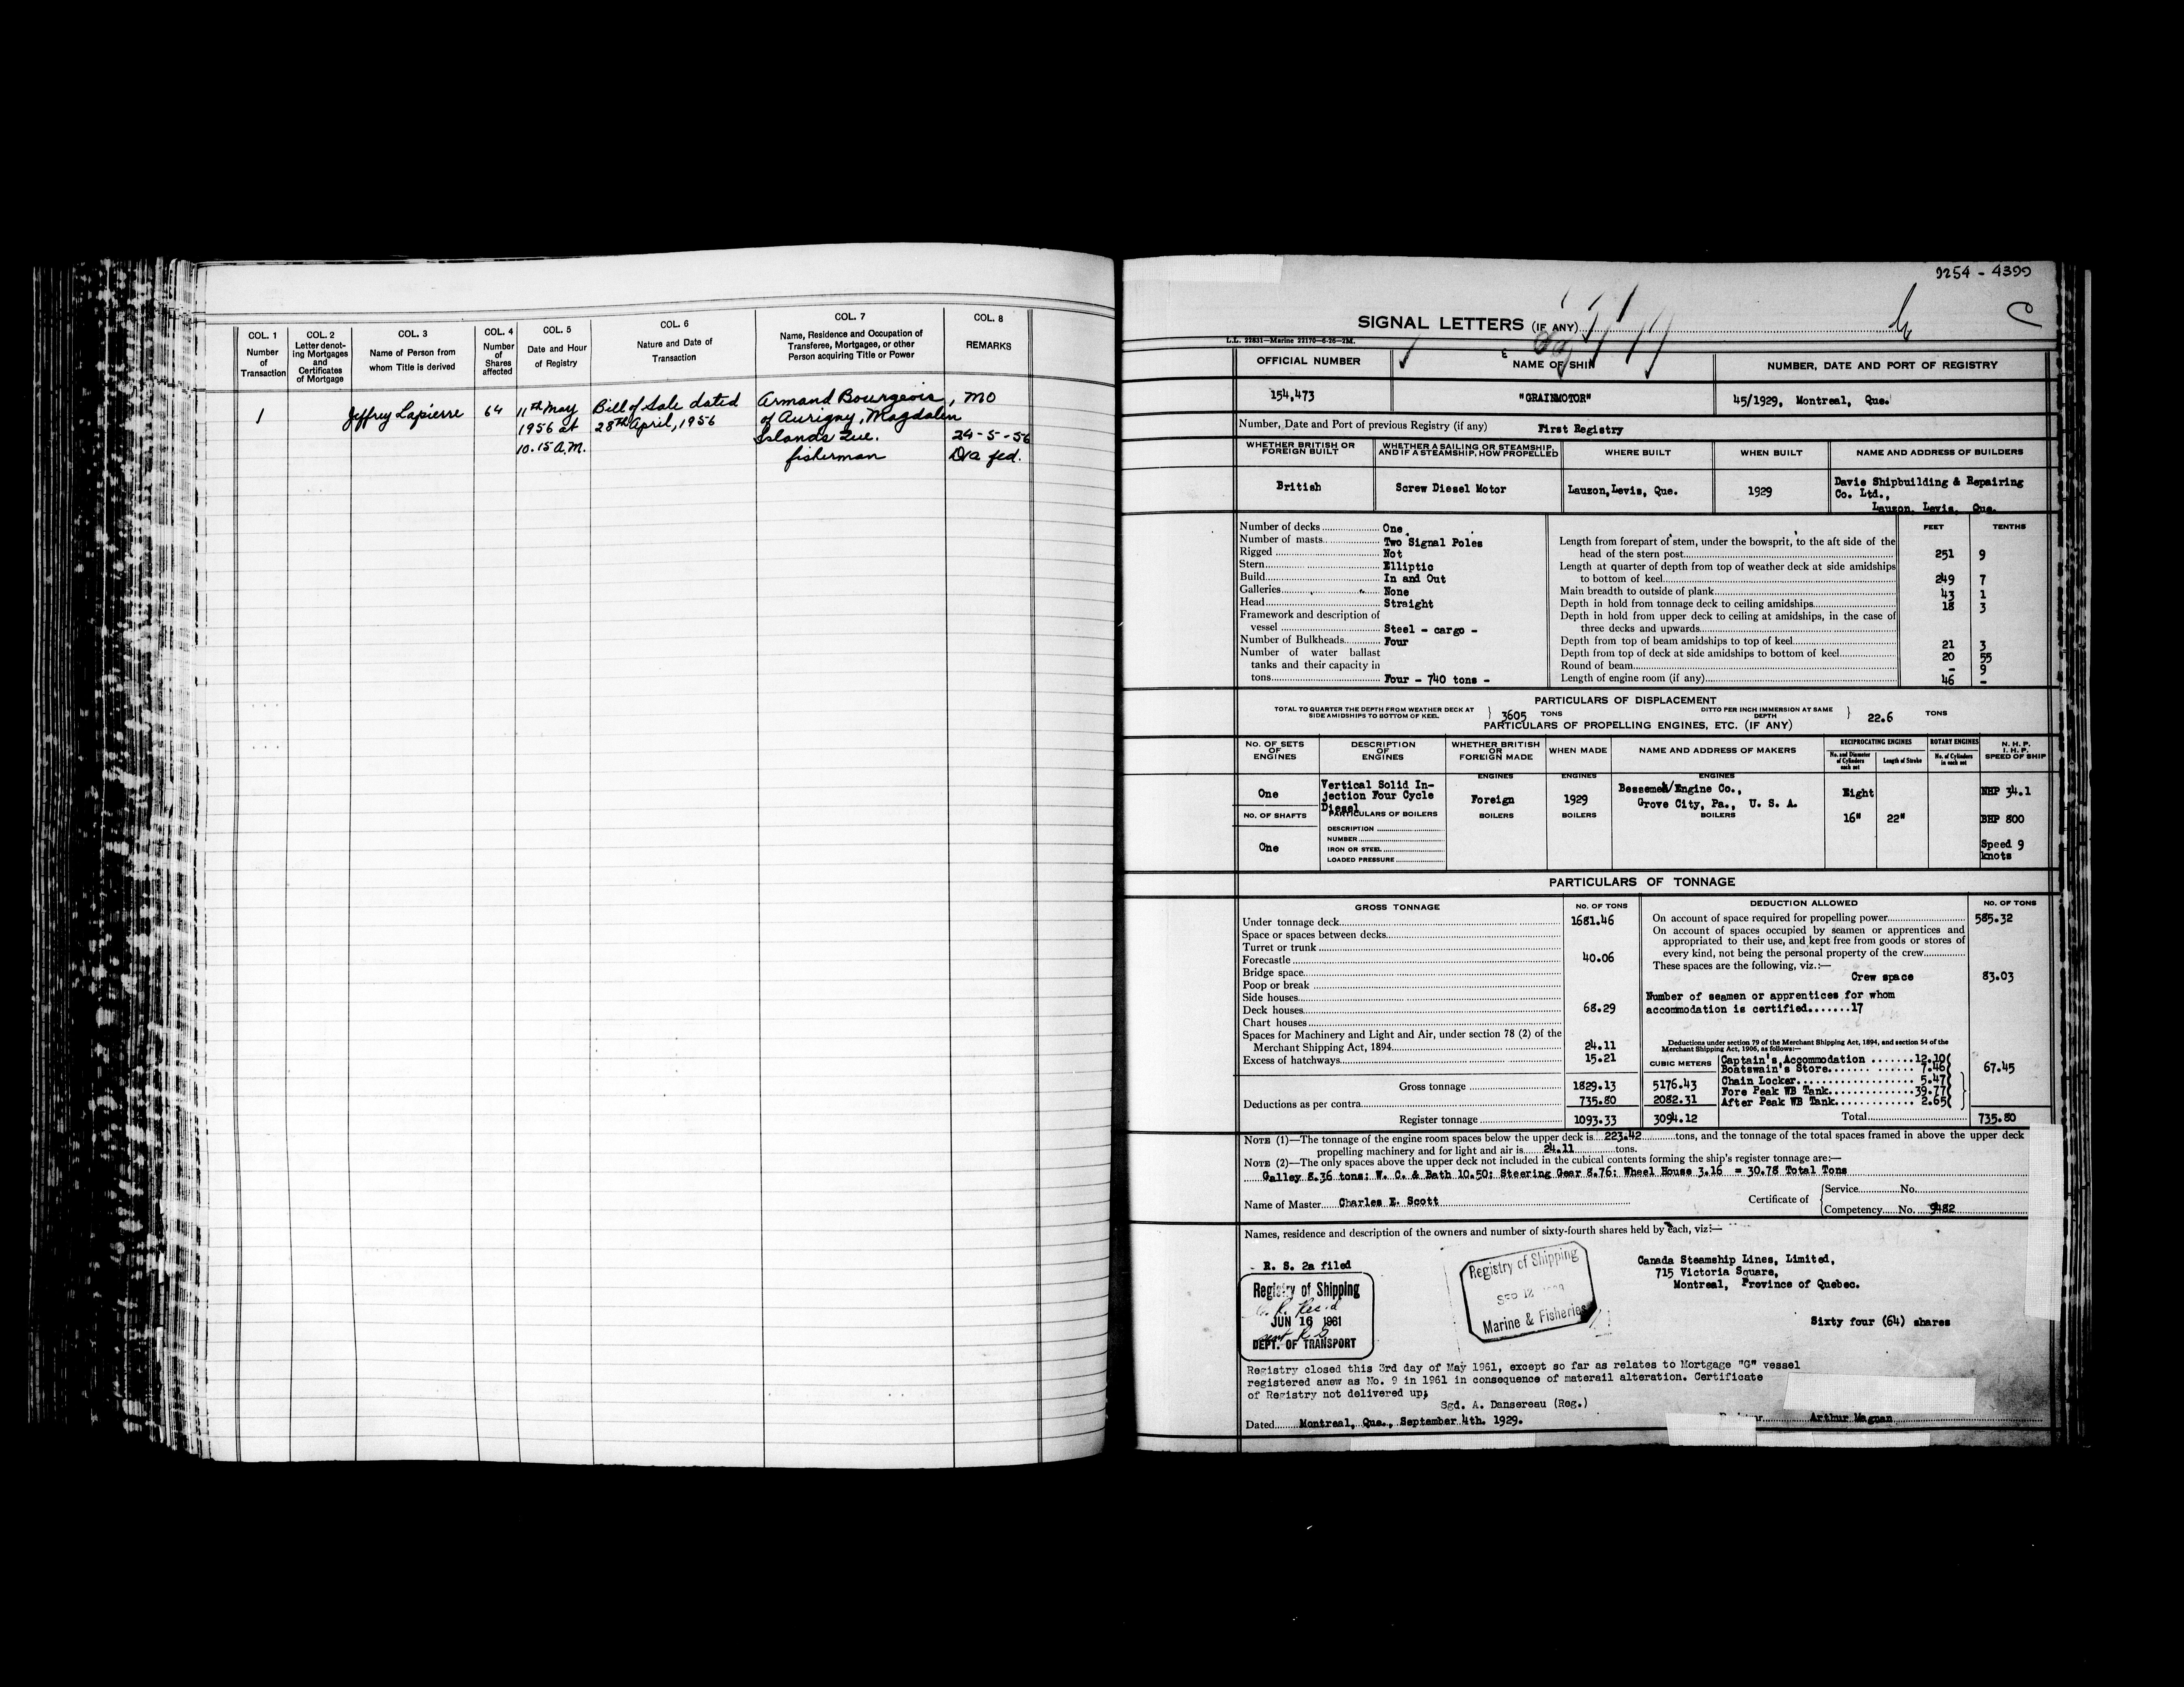 COL. 1
Number
of
Transaction
COL. 2
Letter denot-
ing Mortgages
and
Certificates
of Mortgage
COL. 3
Name of Person from
whom Title is derived
COL. 4
Number
of
Shares
affected
COL. 5
Date and Hour
of Registry
COL. 6
Nature and Date of
Transaction
COL. 7
Name, Residence and Occupation of
Transferee, Mortgagee, or other
Person acquiring Title or Power
COL. 8
REMARKS
1
Jeffrey Lapierre
64
11th May
1956 at
10.15 A.M.
Bill of Sale dated
28th April, 1956
Armand Bourgeois,
of Aurigny, Magdalen
Islands Que.
fisherman
MO
24-5-56
fed.
9254 - 4399
SIGNAL LETTERS (IF ANY)
L.L. 22831—Marine 22170—6-26—2M.
OFFICIAL NUMBER
NAME OF SHIP
NUMBER, DATE AND PORT OF REGISTRY
154,473
"GRAINMOTOR"
45/1929, Montreal, Que.
Number, Date and Port of previous Registry (if any) First Registry
WHETHER BRITISH OR
FOREIGN BUILT
WHETHER A SAILING OR STEAMSHIP,
AND IF A STEAMSHIP, HOW PROPELLED
WHERE BUILT
WHEN BUILT
NAME AND ADDRESS OF BUILDERS
British
Screw Diesel Motor
Lauzon,Levis, Que.
1929
Davie Shipbuilding & Repairing
Co. Ltd.,
Lauzon, Levis, Que.
Number of decks One
Number of masts Two Signal Poles
Rigged Not
Stern Elliptic
Build In and Out
Galleries None
Head Straight
Framework and description of
vessel Steel - cargo -
Number of Bulkheads Four
Number of water ballast
tanks and their capacity in
tons Four - 740 tons -
FEET TENTHS
Length from forepart of stem, under the bowsprit, to the aft side of the
head of the stern post 251 9
Length at quarter of depth from top of weather deck at side amidships
to bottom of keel 249 7
Main breadth to outside of plank 43 1
Depth in hold from tonnage deck to ceiling amidships 18 3
Depth in hold from upper deck to ceiling at amidships, in the case of
three decks and upwards
Depth from top of beam amidships to top of keel 21 3
Depth from top of deck at side amidships to bottom of keel 20 55
Round of beam - 9
Length of engine room (if any) 46 -
PARTICULARS OF DISPLACEMENT
TOTAL TO QUARTER THE DEPTH FROM WEATHER DECK AT
SIDE AMIDSHIPS TO BOTTOM OF KEEL } 3605 TONS
DITTO PER INCH IMMERSION AT SAME
DEPTH } 22.6 TONS
PARTICULARS OF PROPELLING ENGINES, ETC. (IF ANY)
No. OF SETS
OF
ENGINES
DESCRIPTION
OF
ENGINES
WHETHER BRITISH
OR
FOREIGN MADE
WHEN MADE
NAME AND ADDRESS OF MAKERS
RECIPROCATING ENGINES
No. and Diameter
of Cylinders
each set
Length of Stroke
ROTARY ENGINES
No. of Cylinders
in each set
N. H. P.
I. H. P.
SPEED OF SHIP
One
Vertical Solid In-
jection Four Cycle
Diesel
ENGINES
Foreign
ENGINES
1929
ENGINES
Bessemer Engine Co.,
Grove City, Pa., U. S. A.
Eight
16" 22"
NHP 34.1
BHP 800
Speed 9
knots
NO. OF SHAFTS
One
PARTICULARS OF BOILERS
DESCRIPTION
NUMBER
IRON OR STEEL
LOADED PRESSURE
BOILERS
BOILERS
BOILERS
PARTICULARS OF TONNAGE
GROSS TONNAGE NO. OF TONS
Under tonnage deck 1681.46
Space or spaces between decks
Turret or trunk
Forecastle 40.06
Bridge space
Poop or break
Side houses
Deck houses 68.29
Chart houses
Spaces for Machinery and Light and Air, under section 78 (2) of the
Merchant Shipping Act, 1894 24.11
Excess of hatchways 15.21
Gross tonnage 1829.13 5176.43
Deductions as per contra 735.80 2082.31
Register tonnage 1093.33 3094.12
CUBIC METERS
DEDUCTION ALLOWED NO. OF TONS
On account of space required for propelling power 585.32
On account of spaces occupied by seamen or apprentices and
appropriated to their use, and kept free from goods or stores of
every kind, not being the personal property of the crew
These spaces are the following, viz.:—
Crew space 83.03
Number of seamen or apprentices for whom
accommodation is certified.......17
Deductions under section 79 of the Merchant Shipping Act, 1894, and section 54 of the
Merchant Shipping Act, 1906, as follows:—
Captain's Accommodation .......12.10(
Boatswain's Store 7.46(
Chain Locker 5.47(
Fore Peak WB Tank 39.77(
After Peak WB Tank 2.65(
67.45
Total 735.80
NOTE (1)—The tonnage of the engine room spaces below the upper deck is 223.42 tons, and the tonnage of the total spaces framed in above the upper deck
propelling machinery and for light and air is 24.11 tons.
NOTE (2)—The only spaces above the upper deck not included in the cubical contents forming the ship's register tonnage are:—
Galley 8.36 tons; W. C. & Bath 10.50; Steering Gear 8.76; Wheel House 3.16 = 30.78 Total Tons
Name of Master Charles E. Scott
Certificate of { Service No.
Competency No. 9482
Names, residence and description of the owners and number of sixty-fourth shares held by each, viz:—
R. S. 2a filed
Registry of Shipping
JUN 16 1961
DEPT. OF TRANSPORT
Registry of Shipping
SEP 12
Marine & Fisheries
Canada Steamship Lines, Limited,
715 Victoria Square,
Montreal, Province of Quebec.
Sixty four (64) shares
Registry closed this 3rd day of May 1961, except so far as relates to Mortgage "G" vessel
registered anew as No. 9 in 1961 in consequence of materail alteration. Certificate
of Registry not delivered up;
Sgd. A. Dansereau (Reg.)
Dated Montreal, Que., September 4th. 1929.
Arthur Magnan